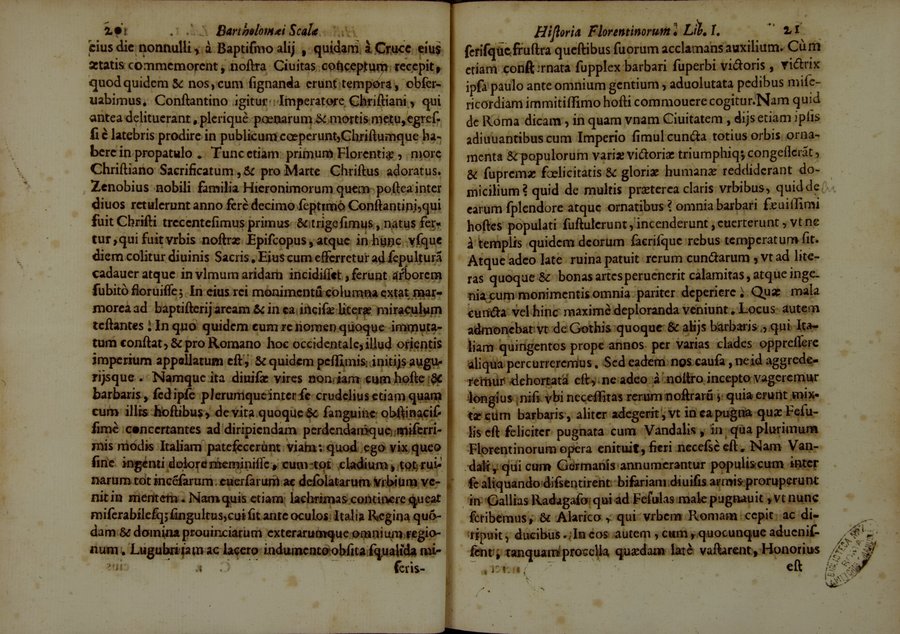 20 Bartholomæi Scalæ
eius die nonnulli, à Baptismo alij, quidam à Cruce eius
ætatis commemorent, nostra Ciuitas conceptum recepit,
quod quidem & nos, cum signanda erunt tempora, obser-
uabimus. Constantino igitur Imperatore Christiani, qui
antea delituerant, pleriquè pœnarum & mortis metu, egres-
si è latebris prodire in publicum cœperunt, Christumque ha-
bere in propatulo. Tunc etiam primum Florentiæ, more
Christiano Sacrificatum, & pro Marte Christus adoratus.
Zenobius nobili familia Hieronimorum quem postea inter
diuos retulerunt anno ferè decimo septimo Constantini, qui
fuit Christi trecentesimus primus & trigesimus, natus fer-
tur, qui fuit vrbis nostræ Episcopus, atque in hunc vsque
diem colitur diuinis Sacris. Eius cum efferretur ad sepulturã
cadauer atque in vlmum aridam incidisset, ferunt arborem
subitò floruisse; In eius rei monimentũ columna extat mar-
morea ad baptisterij aream & in ea incisæ literæ miraculum
testantes. In quo quidem cum re nomen quoque immuta-
tum constat, & pro Romano hoc occidentale, illud orientis
imperium appellatum est, & quidem pessimis initijs augu-
rijsque. Namque ita diuisæ vires non iam cum hoste &
barbaris, sed ipse plerumque inter se crudelius etiam quam
cum illis hostibus, de vita quoque & sanguine obstinacis-
simè concertantes ad diripiendam perdendamque miserri-
mis modis Italiam patefecerunt viam: quod ego vix queo
sine ingenti dolore meminisse, cum tot cladium, tot rui-
narum tot incẽsarum euersarum ac desolatarum vrbium ve-
nit in mentem. Nam quis etiam lachrimas continere queat
miserabilesq; singultus, cui sit ante oculos Italia Regina quõ-
dam & domina prouinciarum exterarumque omnium regio-
num. Lugubri iam ac lacero indumento obsita squalida mi-
seris-
Historia Florentinorum. Lib. I. 21
serisque frustra questibus suorum acclamans auxilium. Cũm
etiam consternata supplex barbari superbi victoris, victrix
ipsa paulo ante omnium gentium, aduolutata pedibus mise-
ricordiam immitissimo hosti commouere cogitur. Nam quid
de Roma dicam, in quam vnam Ciuitatem, dijs etiam ipsis
adiuuantibus cum Imperio simul cuncta totius orbis orna-
menta & populorum variæ victoriæ triumphiq; congesserãt,
& supremæ fœlicitatis & gloriæ humanæ reddiderant do-
micilium? quid de multis præterea claris vrbibus, quid de
earum splendore atque ornatibus? omnia barbari sæuissimi
hostes populati sustulerunt, incenderunt, euerterunt, vt ne
à templis quidem deorum sacrisque rebus temperatum sit.
Atque adeo late ruina patuit rerum cunctarum, vt ad lite-
ras quoque & bonas artes peruenerit calamitas, atque inge-
nia cum monimentis omnia pariter deperiere. Quæ mala
cuncta vel hinc maximè deploranda veniunt. Locus autem
admonebat vt de Gothis quoque & alijs barbaris, qui Ita-
liam quingentos prope annos per varias clades oppressere
aliqua percurreremus. Sed eadem nos causa, ne id aggrede-
remur dehortata est, ne adeo à nostro incepto vageremur
longius nisi vbi necessitas rerum nostrarũ; quia erunt mix-
tæ cum barbaris, aliter adegerit, vt in ea pugna quæ Fesu-
lis est feliciter pugnata cum Vandalis, in qua plurimum
Florentinorum opera enituit, fieri necesse est. Nam Van-
dali, qui cum Germanis annumerantur populis cum inter
se aliquando dissentirent bifariam diuisis armis proruperunt
in Gallias Radagaso qui ad Fesulas male pugnauit, vt nunc
scribemus, & Alarico, qui vrbem Romam cepit ac di-
ripuit, ducibus. In eos autem, cum, quocunque aduenis-
sent, tanquam procella quædam latè vastarent, Honorius
est